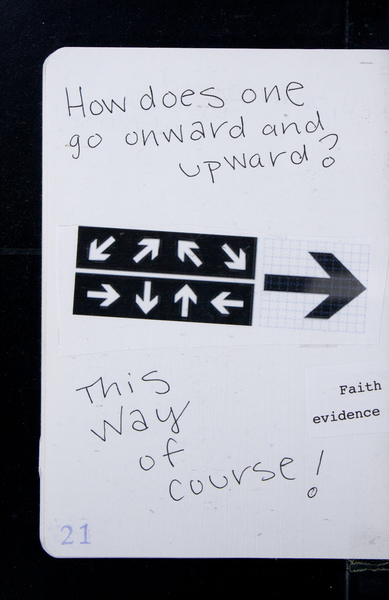 How does one
go onward and
upward?
This
way
of
course!
Faith
evidence
21